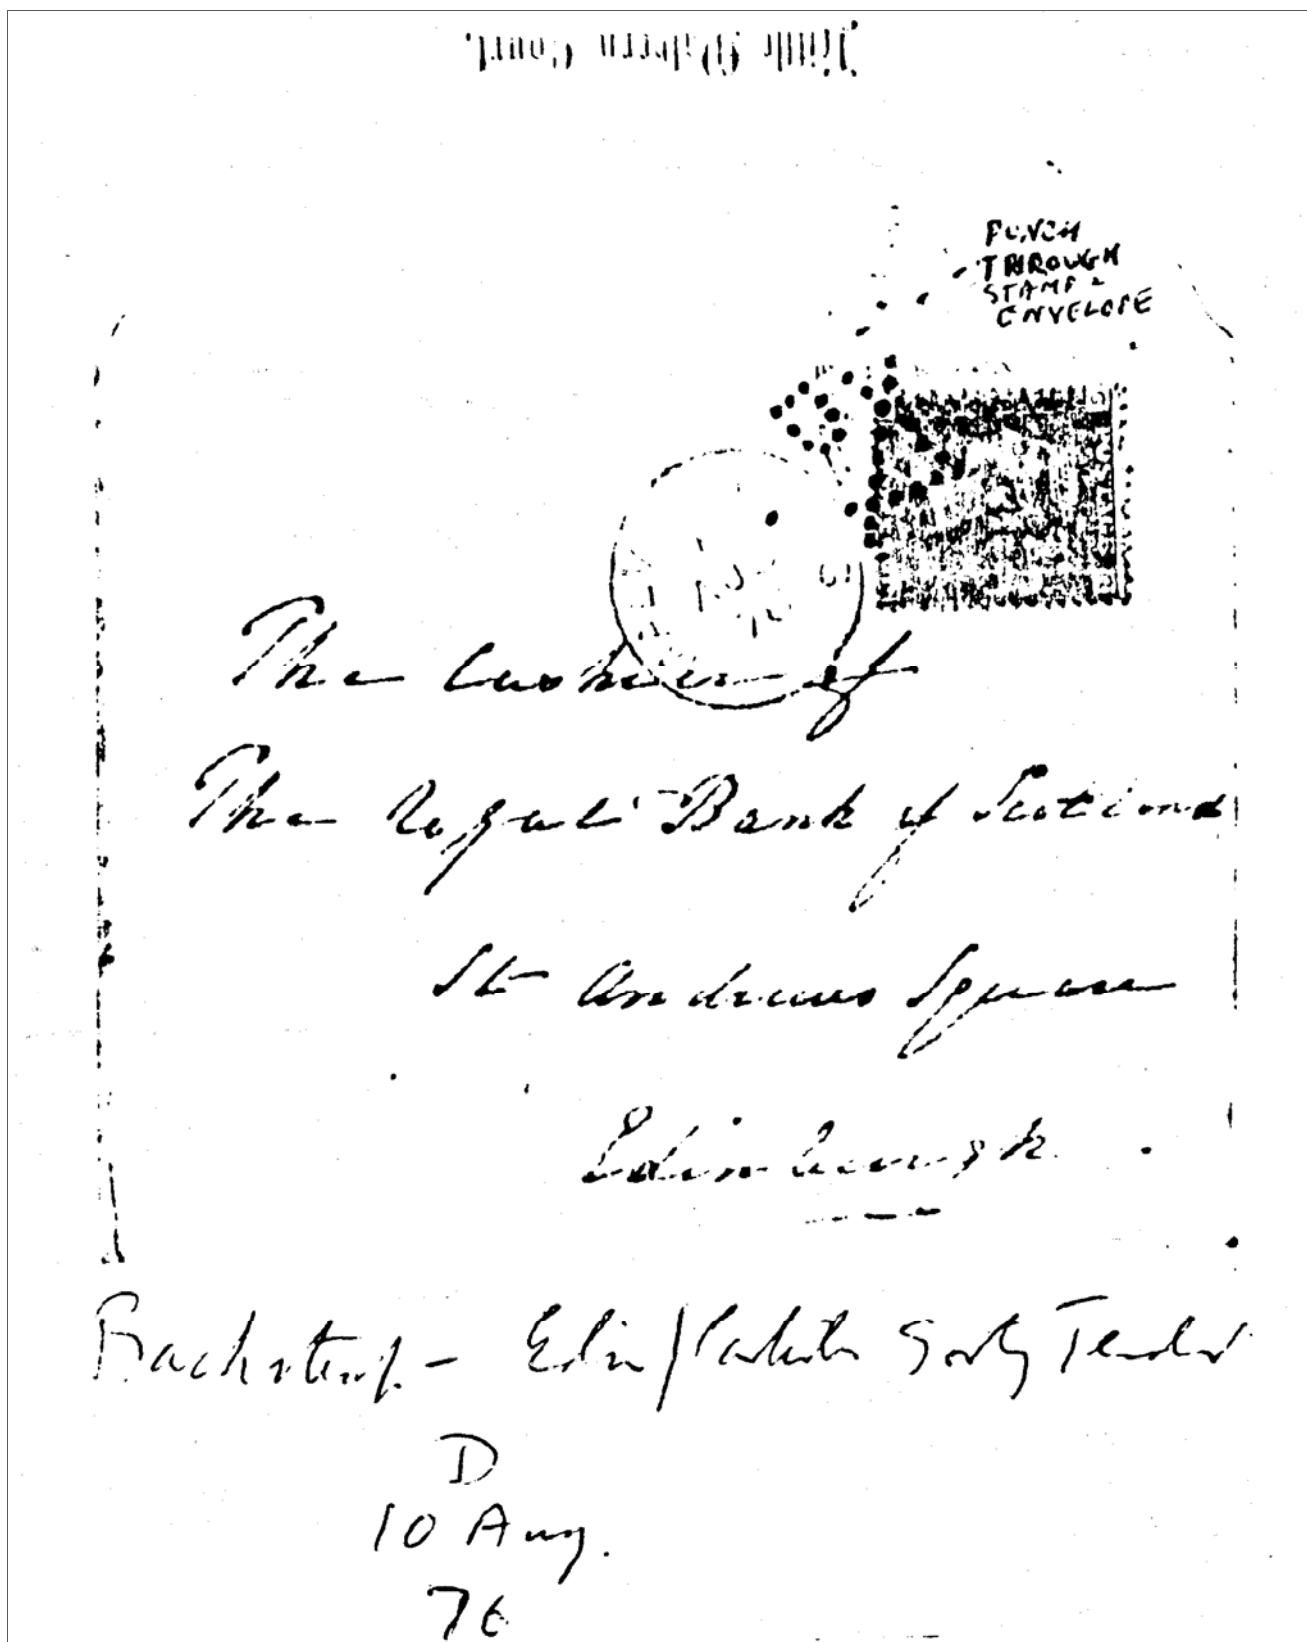 Little Malvern Court.
PUNCH
THROUGH
STAMP &
ENVELOPE
The Cashier of
The Royal Bank of Scotland
St Andrews Square
Edinburgh.
Backstamp - Edin/Carlisle Sorting Tender
D
10 Aug.
76